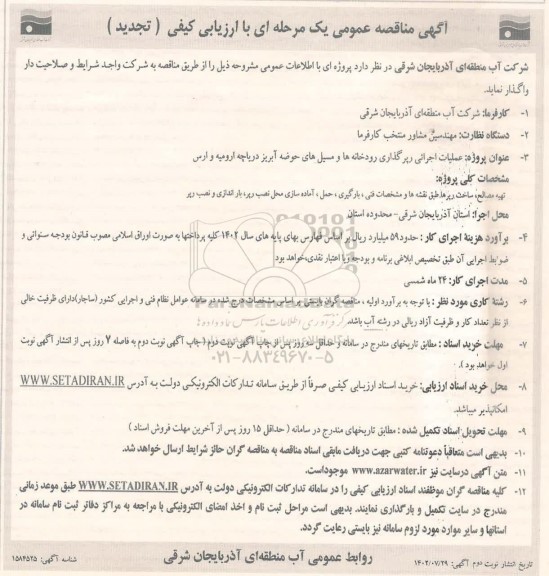 آگهی مناقصه عمومی یک مرحله ای با ارزیابی کیفی ( تجدید )
شرکت آب منطقه‌ای آذربایجان شرقی در نظر دارد پروژه ای با اطلاعات عمومی مشروحه ذیل را از طریق مناقصه به شرکت واجد شرایط و صلاحیت دار
واگذار نماید.
۱- کارفرما: شرکت آب منطقه‌ای آذربایجان شرقی
۲- دستگاه نظارت: مهندسین مشاور منتخب کارفرما
۳- عنوان پروژه: عملیات اجرائی ریرگذاری رودخانه ها و مسیل های حوضه آبریز دریاچه ارومیه و ارس
مشخصات کلی پروژه:
تهیه مصالح، ساخت ریرها طبق نقشه ها و مشخصات فنی ، بارگیری ، حمل ، آماده سازی محل نصب ریپر، بار اندازی و نصب ریپر
محل اجرا: استان آذربایجان شرقی- محدوده استان
۴- برآورد هزینة اجرای کار : حدود ۵۹ میلیارد ریال بر اساس فهارس بهای پایه های سال ۱۴۰۲ کلیه پرداختها به صورت اوراق اسلامی مصوب قانون بودجه سنواتی و
ضوابط اجرایی آن طبق تخصیص ابلاغی برنامه و بودجه ویا اعتبار نقدی،خواهد بود
۵- مدت اجرای کار: ۲۴ ماه شمسی
۶- رشتة کاری مورد نظر : با توجه به برآورد اولیه ، مناقصه گران بایستی بر اساس مشخصات درج شده در سامانه عوامل نظام فنی و اجرایی کشور (ساجار)دارای ظرفیت خالی
از نظر تعداد کار و ظرفیت آزاد ریالی در رشته آب باشند.
۷- مهلت خرید اسناد : مطابق تاریخهای مندرج در سامانه و حداقل سه روز پس از چاپ آگهی نوبت دوم ( چاپ آگهی نوبت دوم به فاصله ۷ روز پس از انتشار آگهی نوبت
اول خواهد بود ).
۸- محل خرید اسناد ارزیابی: خرید اسناد ارزیابی کیفی صرفاً از طریق سامانه تدارکات الکترونیکی دولت به آدرس WWW.SETADIRAN.IR
امکانپذیر میباشد.
۹- مهلت تحویل اسناد تکمیل شده : مطابق تاریخهای مندرج در سامانه ( حداقل ۱۵ روز پس از آخرین مهلت فروش اسناد )
۱۰- بدیهی است متعاقباً دعوتنامه کتبی جهت دریافت مابقی اسناد مناقصه به مناقصه گران حائز شرایط ارسال خواهد شد.
۱۱- متن آگهی درسایت نیز www.azarwater.ir موجوداست.
۱۲- کلیه مناقصه گران موظفند اسناد ارزیابی کیفی را در سامانه تدارکات الکترونیکی دولت به آدرس WWW.SETADIRAN.IR طبق موعد زمانی
مندرج در سایت تکمیل و بارگذاری نمایند. بدیهی است مراحل ثبت نام و اخذ امضای الکترونیکی با مراجعه به مراکز دفاتر ثبت نام سامانه در
استانها و سایر موارد مورد لزوم سامانه نیز بایستی رعایت گردد.
روابط عمومی آب منطقه‌ای آذربایجان شرقی
تاریخ انتشار نوبت دوم آگهی: ۱۴۰۲/۰۷/۲۹
شناسه آگهی: ۱۵۸۴۵۲۵
ParsNamadData
مرکز فرآوری اطلاعات پارس نماد داده ها
۰۲۱-۸۸۳۴۹۶۷۰-۵